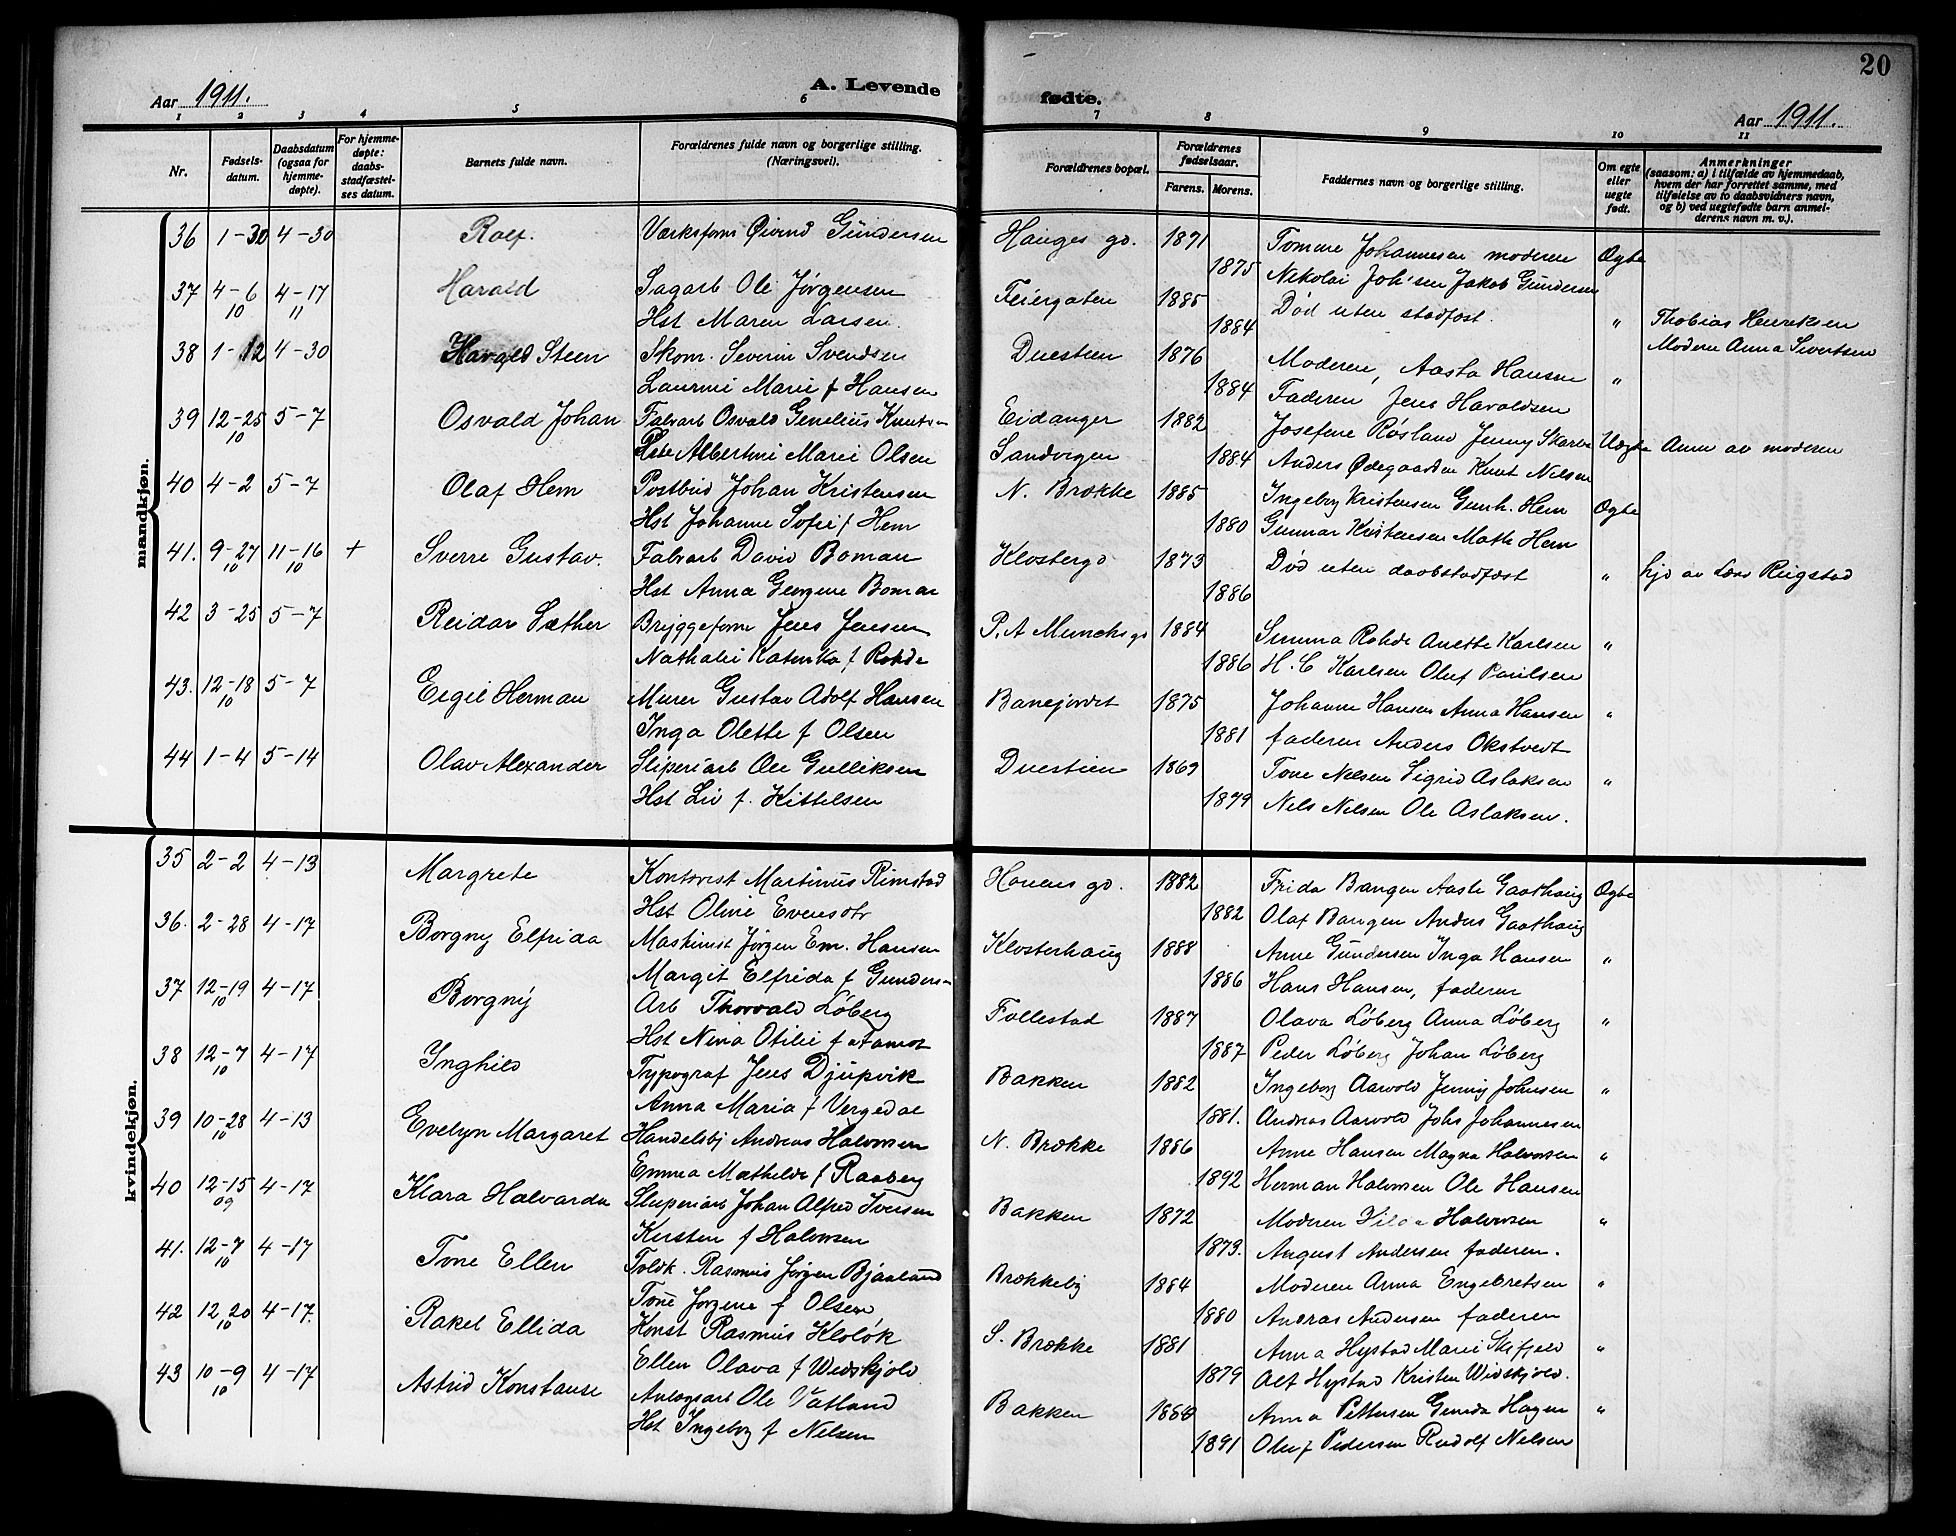 20
Aar 1911.
A. Levende fødte.
Aar 1911.
1 2 3 4 5 6 7 8 9 10 11
Nr.
Fødsels-datum.
Daabsdatum (ogsaa for hjemme-døpte).
For hjemme-døpte: daabs-stadfæstel-ses datum.
Barnets fulde navn.
Forældrenes fulde navn og borgerlige stilling. (Næringsvei).
Forældrenes bopæl.
Forældrenes fødselsaar.
Farens. Morens.
Faddernes navn og borgerlige stilling.
Om egte eller uegte født.
Anmerkninger (saasom: a) i tilfælde av hjemmedaab, hvem der har forrettet samme, med tilføielse av to daabsvidners navn, og b) ved uegtefødte barn anmel-derens navn m. v.).
mandkjøn.
36 1-30 4-30 Rolf. Værksform Øivind Gundersen Hauges gd. 1871 Tomine Johannesen moderen Ægte
1875 Nikolai Joh'sen Jakob Gundersen
37 4-6 10 4-17 11 Harald Sagarb Ole Jørgensen Feiergaten 1885 Død uten stadfæst. "
Hst Maren Larsen. 1884 Thobias Henriksen
38 1-12 4-30 Harald Steen Skom. Severin Svendsen Duestien 1876 Moderen, Aasta Hansen " Modern Anna Sivertsen
Laurine Marie f Hansen 1884 Faderen Jens Haraldsen
39 12-25 10 5-7 Osvald Johan Fabrarb Osvald Genelius Knuts- Eidanger 1882 Josefine Røsland Jenny Uegte Anm av moderen
Albertine Marie Olsen Sandvigen 1884 Anders Ødegaarden Knut Nilsen
40 4-2 5-7 Olaf Hem Postbud Johan Kristensen N. Brække 1885 Ingeborg Kristensen Gunh. Hem Ægte
Hst Johanne Sofie f Hem 1880 Gunnar Kristensen Math Hem
41. 9-27 10 11-16 10 + Sverre Gustav. Fabrarb David Boman Klostergd 1873 Død uten daabstadfæst " hjd av Læs Rugstad
Hst Anna Georgine Boman 1886
42 3-25 5-7 Reidar Sæther Bryggeform Jens Jensen P. A Munchs gd 1884 Rohde Anette Karlsen "
Nathalie Katinka f. Rohde 1886 H. C Karlsen Oluf Paulsen
43. 12-18 10 5-7 Eigil Herman Murer Gustav Adolf Hansen Banejordet 1875 Johanne Hansen Anna Hansen "
Inga Olette f Olsen 1881 faderen Anders Okstvedt
44 1-4 5-14 Olav Alexander Sliperiarb Ole Gulliksen Duestien 1869 Tone Nilsen Sigrid Aslaksen "
Hst Liv f. Kittelsen 1879 Nels Nilsen Ole Aslaksen.
kvindekjøn.
35 2-2 4-13 Margrete Kontorist Martinus Rimstad Hauens gd. 1882 Frida Bangen Aaste Gaathaug Ægte
Hst Oline Evensdtr 1882 Olaf Bangen Anders Gaathaug
36. 2-28 4-17 Borgny Elfrida Maskinist Jørgen Em. Hansen Klosterhaug 1888 Anne Gundersen Inga Hansen "
Margit Elfrida f Gunders- 1886 Hans Hansen, faderen
37 12-19 10 4-17 Borgny Arb Thorvald Löberg Follestad 1887 Olava Löberg Anna Löberg "
Hst Nina Otilie f Aamot 1887 Peder Löberg Johan Löberg
38 12-7 10 4-17 Inghild Typograf Jens Djupvik Bakken 1882 Ingeborg Aarvold Jenny Johnsen "
Anna Maria f Vergedal 1881. Andreas Aarvold Johs Johannesen
39 10-28 10 4-13 Evelyn Margaret Handelsbj Andreas Halvorsen N. Brække 1886 Anne Hansen Magna Halvorsen "
Emma Mathilde f Raaberg 1892 Herman Halvorsen Ole Hansen
40 12-15 09 4-17 Klara Halvarda Sliperiarb Johan Alfred Iversen Bakken 1872 Moderen Halvorsen "
Kirsten f Halvorsen 1873. August Andersen faderen.
41. 12-7 10 4-17 Tone Ellen Toldk. Rasmus Jørgen Bjaaland Brækkeby 1884 Moderen Anna Engebretsen "
Tone Jorgine f Olsen 1880 Andreas Andersen faderen
42 12 20 10 4-17. Rakel Ellida Konst Rasmus Kloløk S. Brække 1881 Anna Hystad Marie "
Ellen Olava f Widskjold 1879 Alf Hystad Kristen Widskjold.
43 10-9 10 4-17 Astrid Konstanse Anlægsarb Ole Vatland Bakken Anna Pettersen Gunda Hagen "
Hst Ingeborg f Nilsen 1891 Oluf Pedersen Rudolf Nilsen